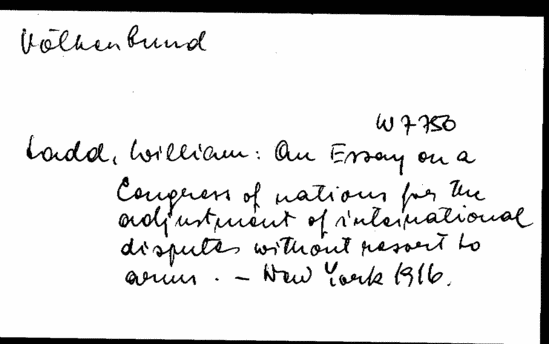 Völkerbund
W 7750
Ladd, William: An Essay on a
Congress of nations for the
adjustment of international
disputes without resort to
arms. - New York 1916.